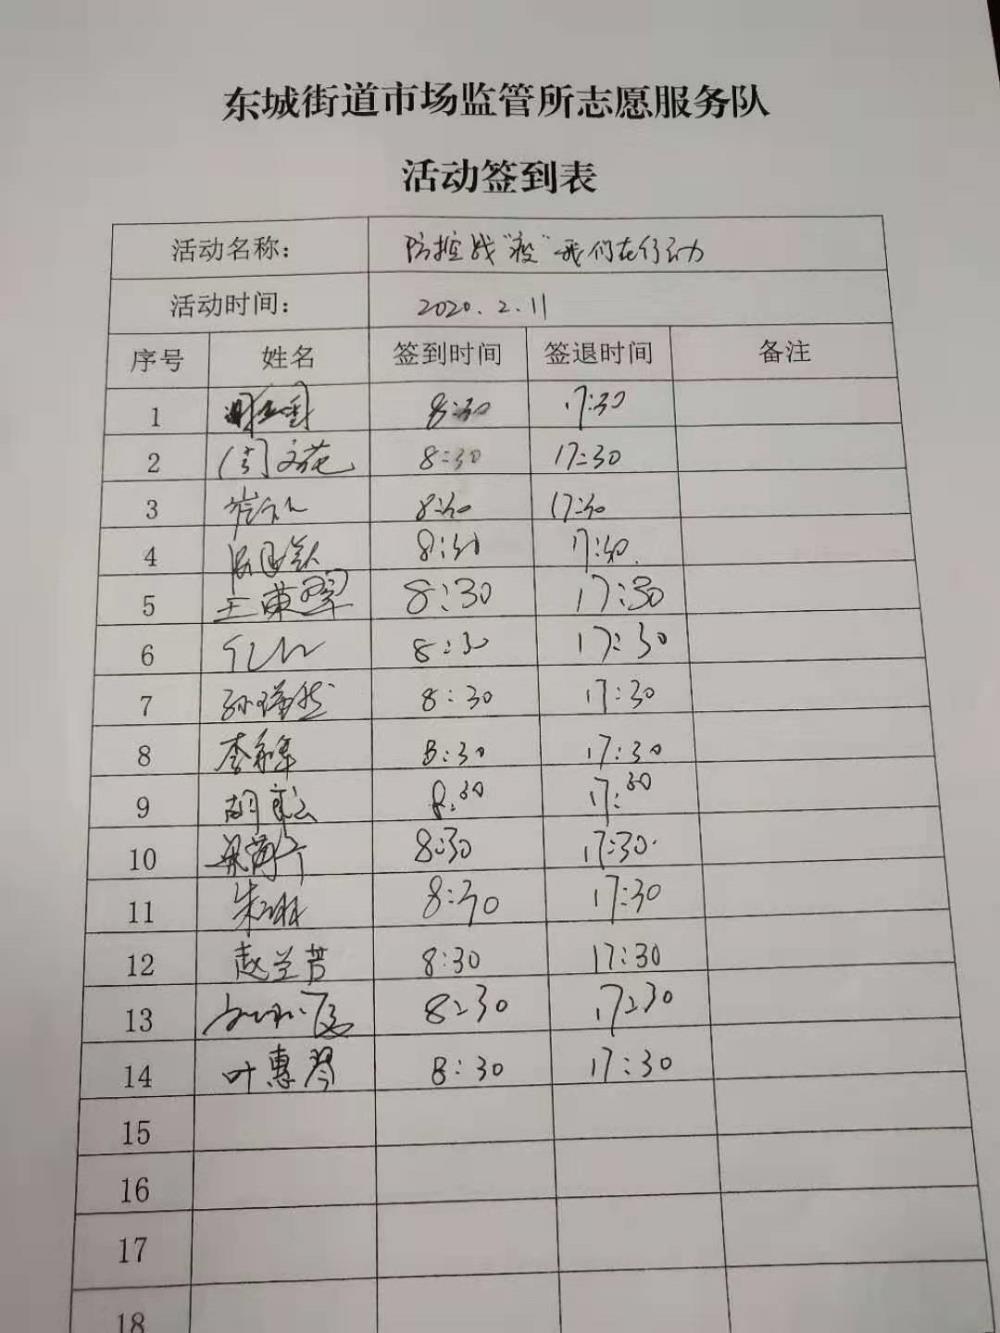 东城街道市场监管所志愿服务队
活动签到表
活动名称： 防控战"疫"我们在行动
活动时间： 2020.2.11
序号 姓名 签到时间 签退时间 备注
1 8:30 17:30
2 闫文花 8:30 17:30
3 8:30 17:30
4 8:30 17:30
5 王東翠 8:30 17:30
6 8:30 17:30
7 孙瑾然 8:30 17:30
8 李家军 8:30 17:30
9 胡 8:30 17:30
10 8:30 17:30.
11 朱 8:30 17:30
12 赵兰芳 8:30 17:30
13 8:30 17:30
14 叶惠琴 8:30 17:30
15
16
17
18